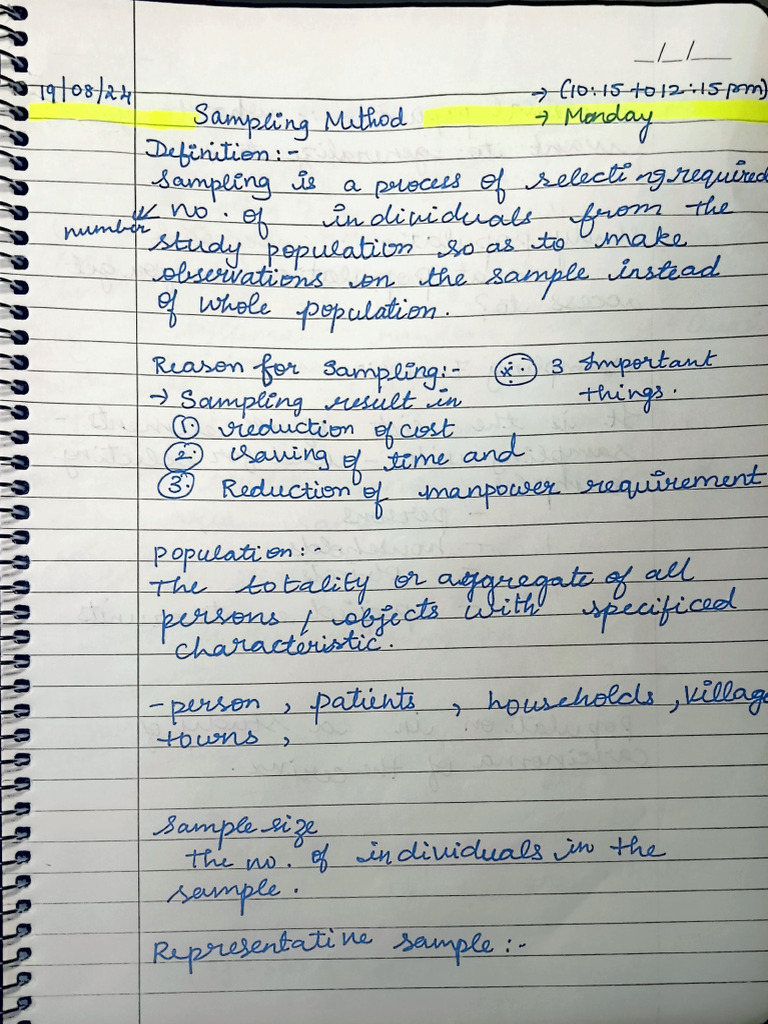 _/_/__
19/08/24 → (10:15 to 12:15pm)
Sampling Method → Monday
Definition:-
Sampling is a process of selecting required
number no. of individuals from the
study population so as to make
observations on the sample instead
of whole population.
Reason for Sampling:- * 3 Important
→ Sampling result in things.
1. reduction of cost
2. saving of time and
3. Reduction of manpower requirement
Population:-
The totality or aggregate of all
persons / objects with specificed
characteristic.
- person , patients , households , village
towns ,
Sample size
the no. of individuals in the
sample.
Representative sample :-